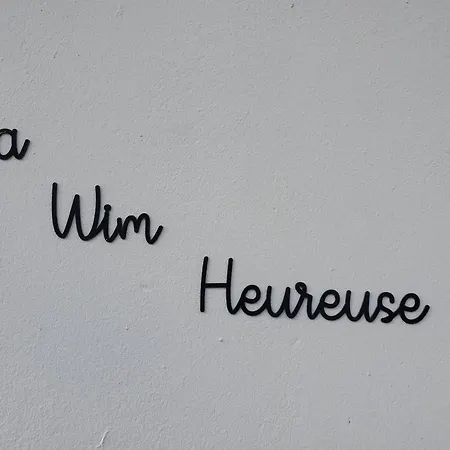 a
Wim
Heureuse